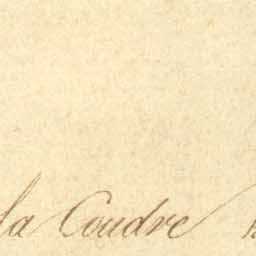 la Coudre